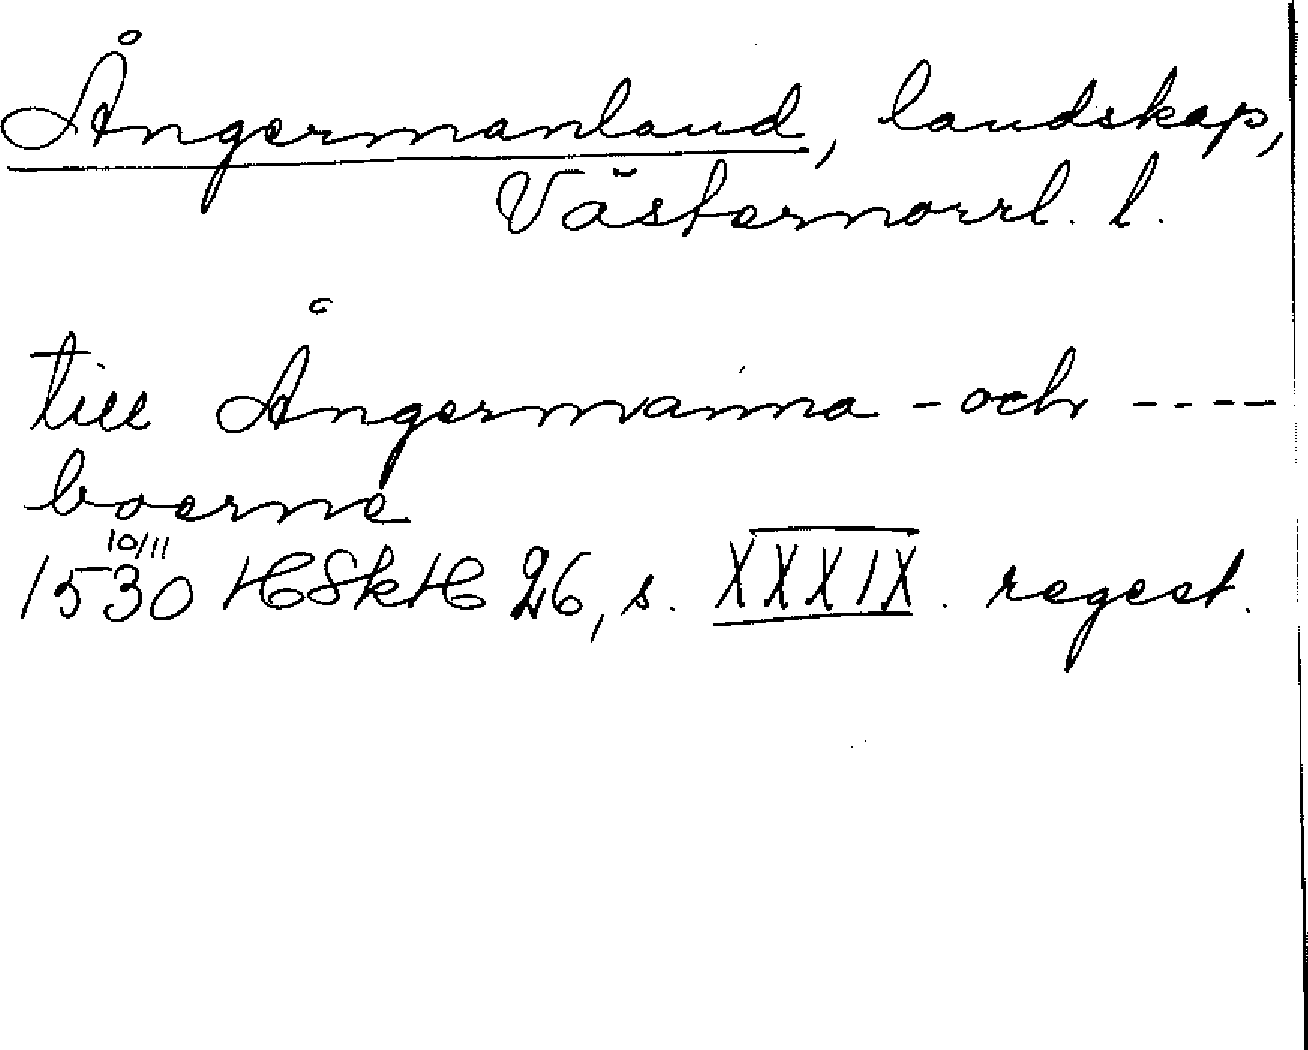 Ångermanland, landskap,
Västernorrl. l.
till Ångermanna - och ----
boerne
10/11
1530 HSkH 26, s. XXXIX. regest.